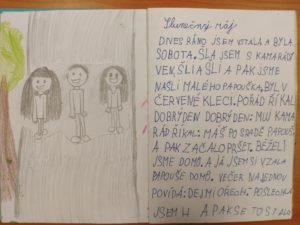 Slunečný ráj
DNES RÁNO JSEM VSTALA A BYLA
SOBOTA. ŠLA JSEM S KAMARÁDY
VEN, ŠLI A ŠLI A PAK JSME
NAŠLI MALÉHO PAPOUŠKA, BYL V
ČERVENÉ KLECI. POŘÁD ŘÍKAL
DOBRÝ DEN DOBRÝ DEN. MŮJ KAMA
RÁD ŘÍKAL: MÁŠ PO SRADĚ PAPOUŠ
A PAK ZAČALO PRŠET. BĚŽELI
JSME DOMŮ. A JÁ JSEM SI VZALA
PAPOUŠE DOMŮ. VEČER NAJEDNOU
POVÍDÁ: DEJ MI OŘECH. POSLECHLA
JSEM A PAK SE TO STALO